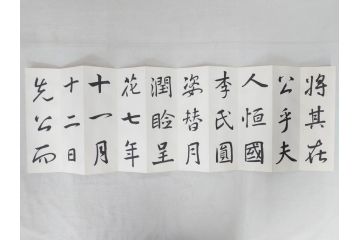 將其在
公乎夫
人恒國
李氏圓
姿替月
潤晗呈
花七年
十一月
十二日
先公而